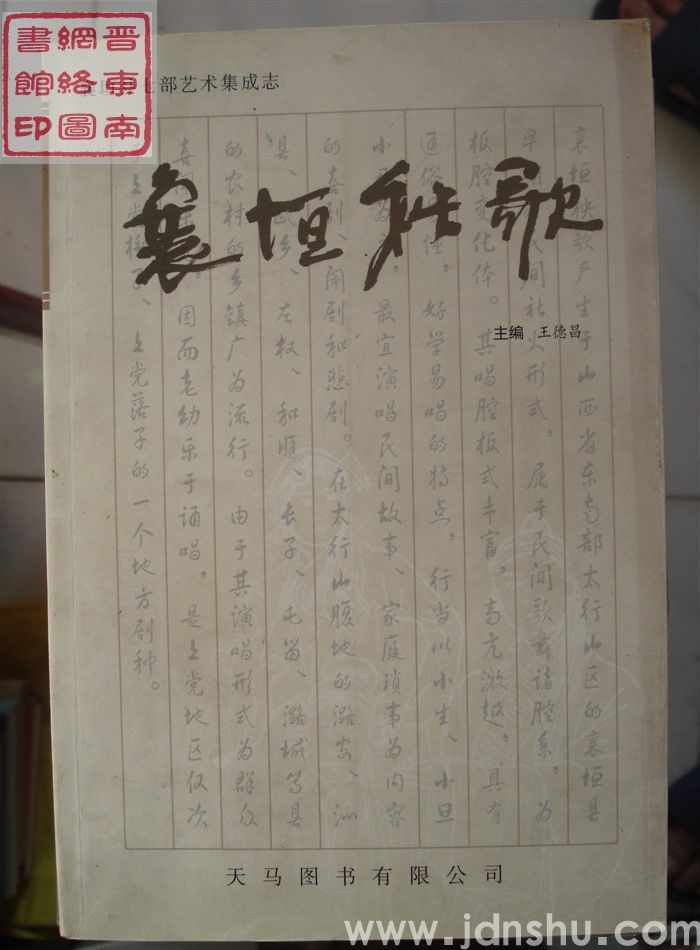 晋东南
網絡圖
書館印
七部艺术集成志
襄垣秧歌
主编 王德昌
襄垣秧歌产生于山西省东南部太行山区的襄垣县
民间社火形式。属于民间歌舞诸腔系。为
板腔变化体。其唱腔板式丰富。高亢激越。具有
通俗易懂。好学易唱的特点。行当以小生、小旦
小丑为。最宜演唱民间故事、家庭琐事为内容
的喜剧、闹剧和悲剧。在太行山腹地的潞安、沁
县、武乡、左权、和顺、长子、屯留、潞城等县
的农村的乡镇广为流行。由于其演唱形式为群众
喜闻乐。因而老幼乐于诵唱。是上党地区仅次
上党梆子、上党落子的一个地方剧种。
天马图书有限公司
www.jdnshu.com